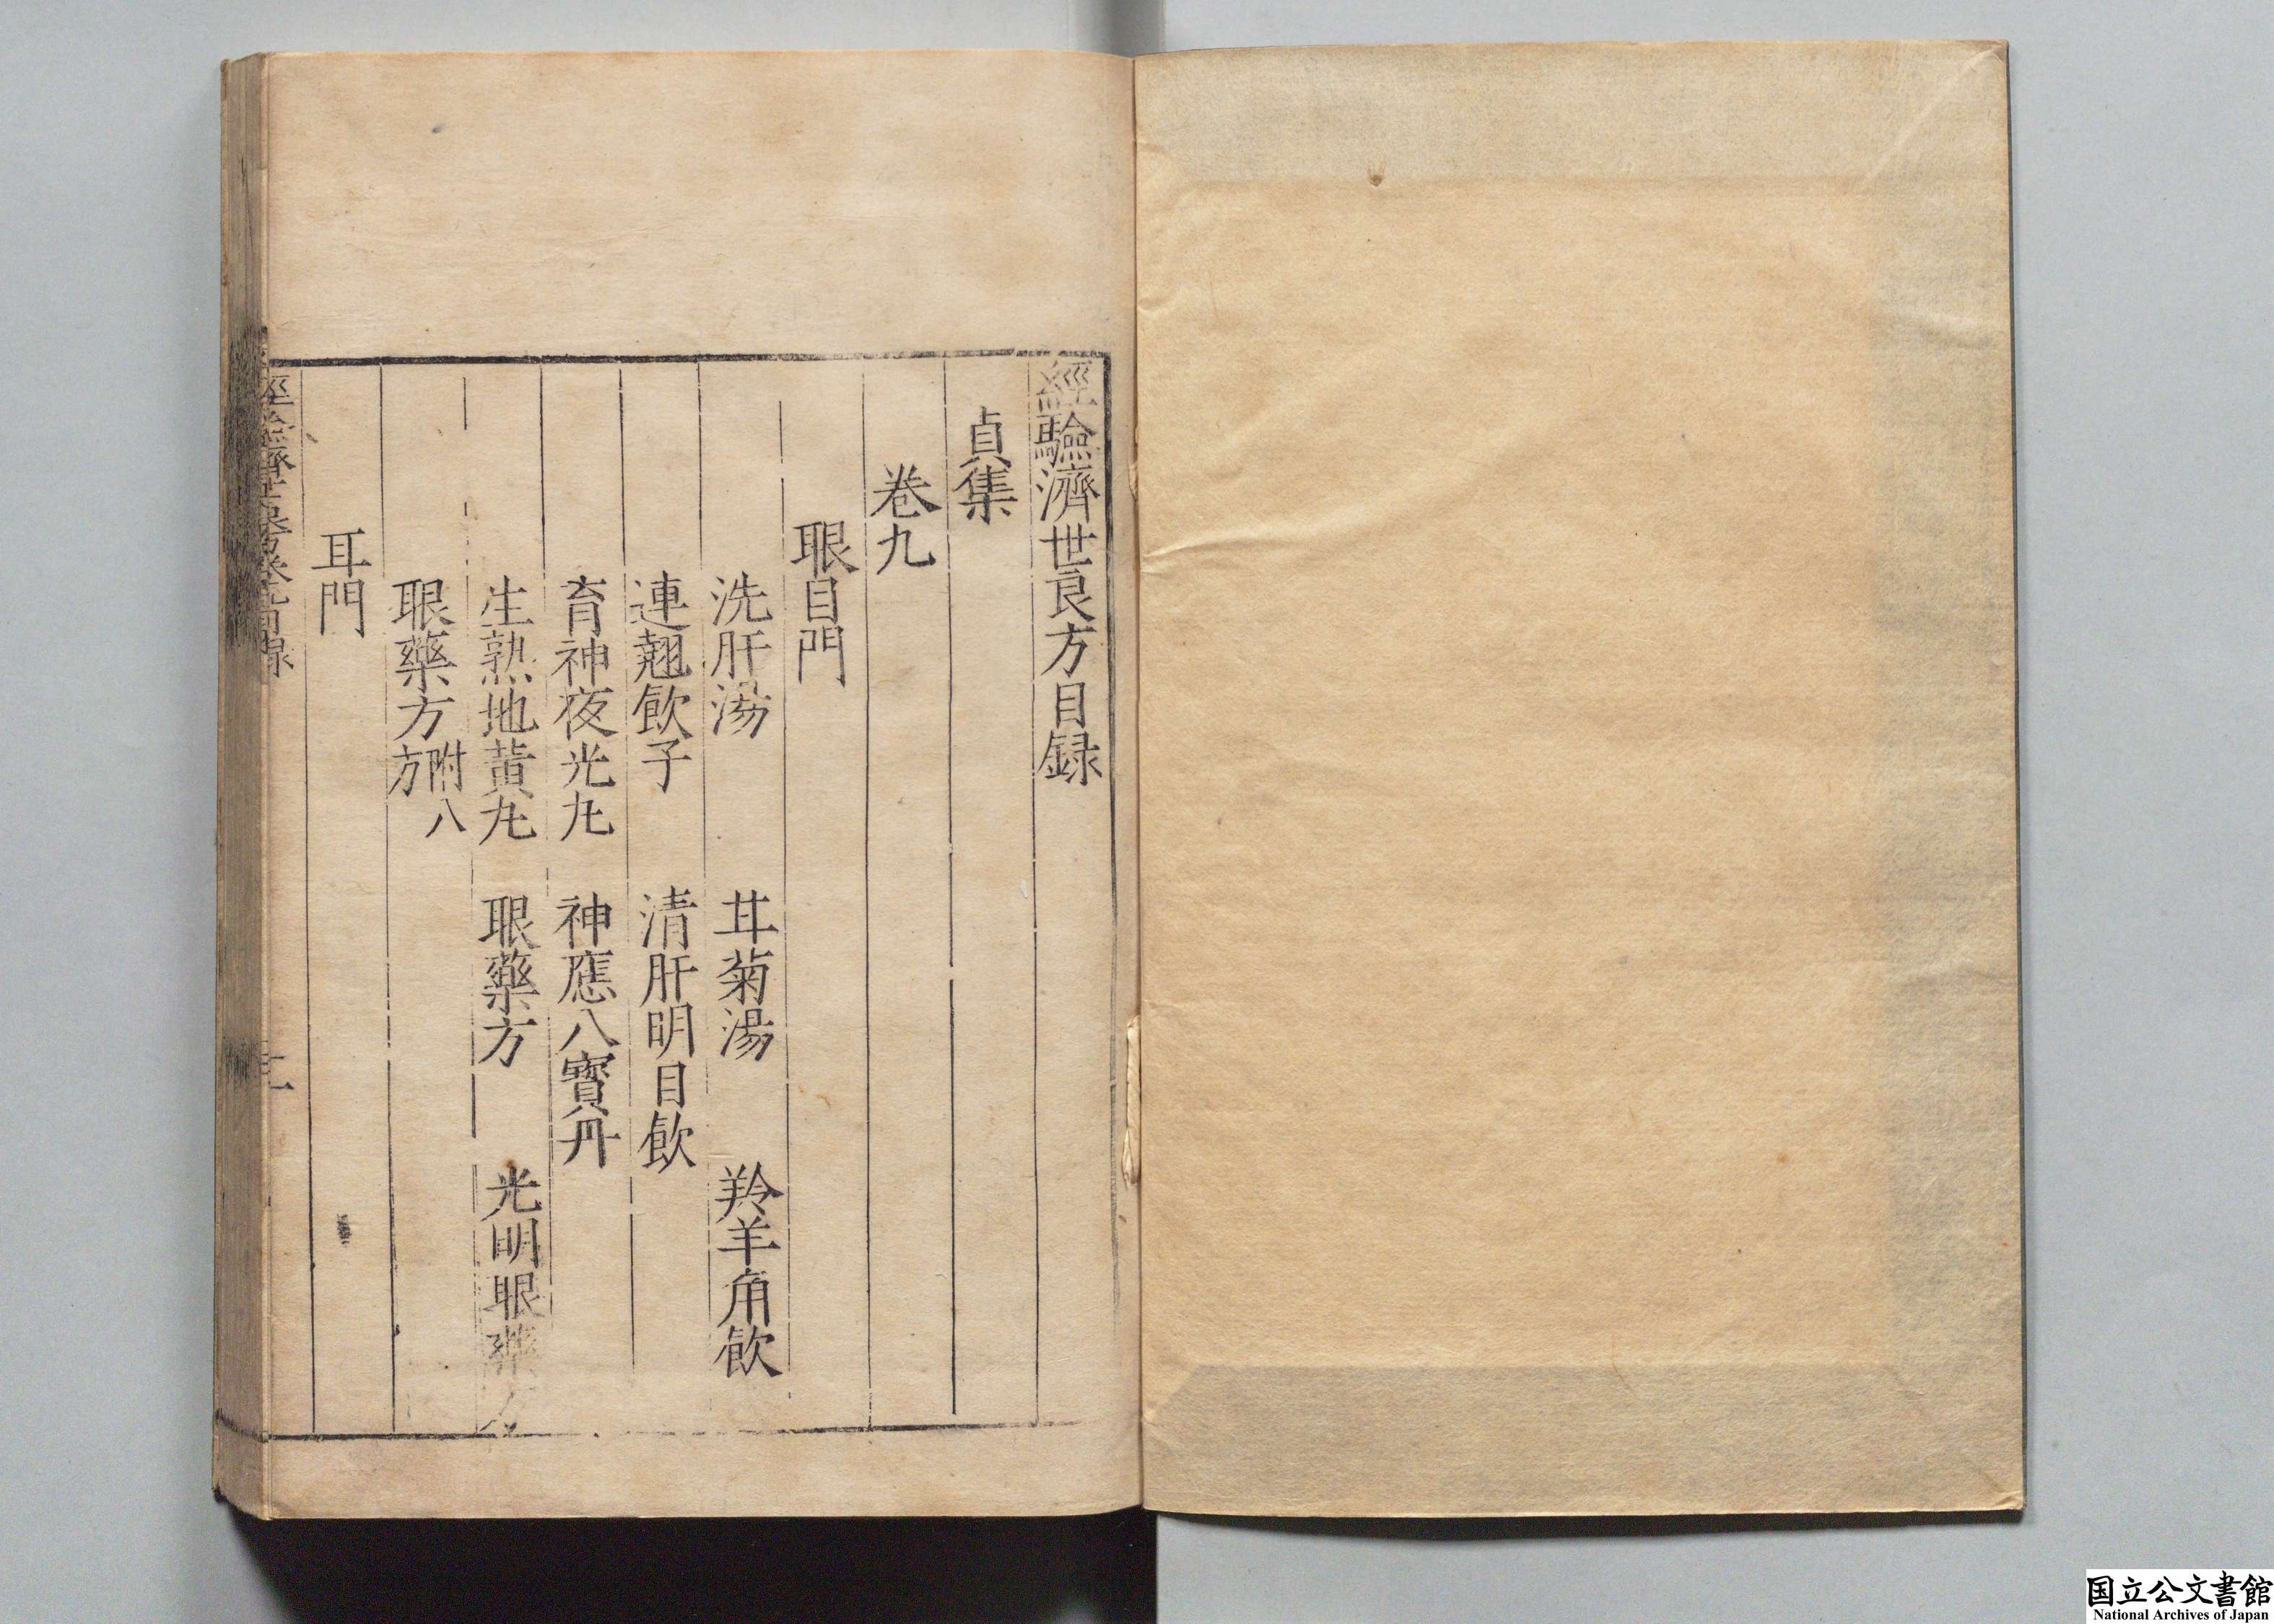 經驗濟世良方目録
貞集
卷九
眼目門
洗肝湯 甘菊湯 羚羊角飲
連翹飲子 清肝明目飲
育神夜光丸 神應八寶丹
生熟地黃丸 眼藥方 光明眼藥方
眼藥方附八方
耳門
国立公文書館
National Archives of Japan